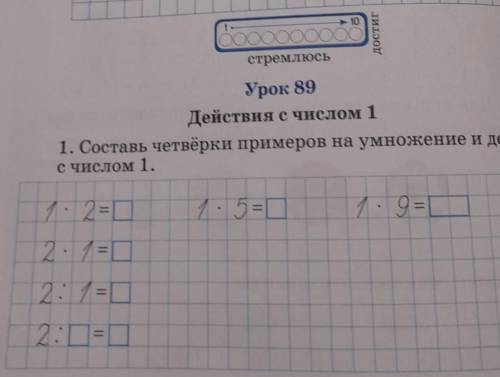 1 10
стремлюсь
достиг
Урок 89
Действия с числом 1
1. Составь четвёрки примеров на умножение и де
с числом 1.
1 · 2 = □ 1 · 5 = □ 1 · 9 = □
2 · 1 = □
2 : 1 = □
2 : □ = □